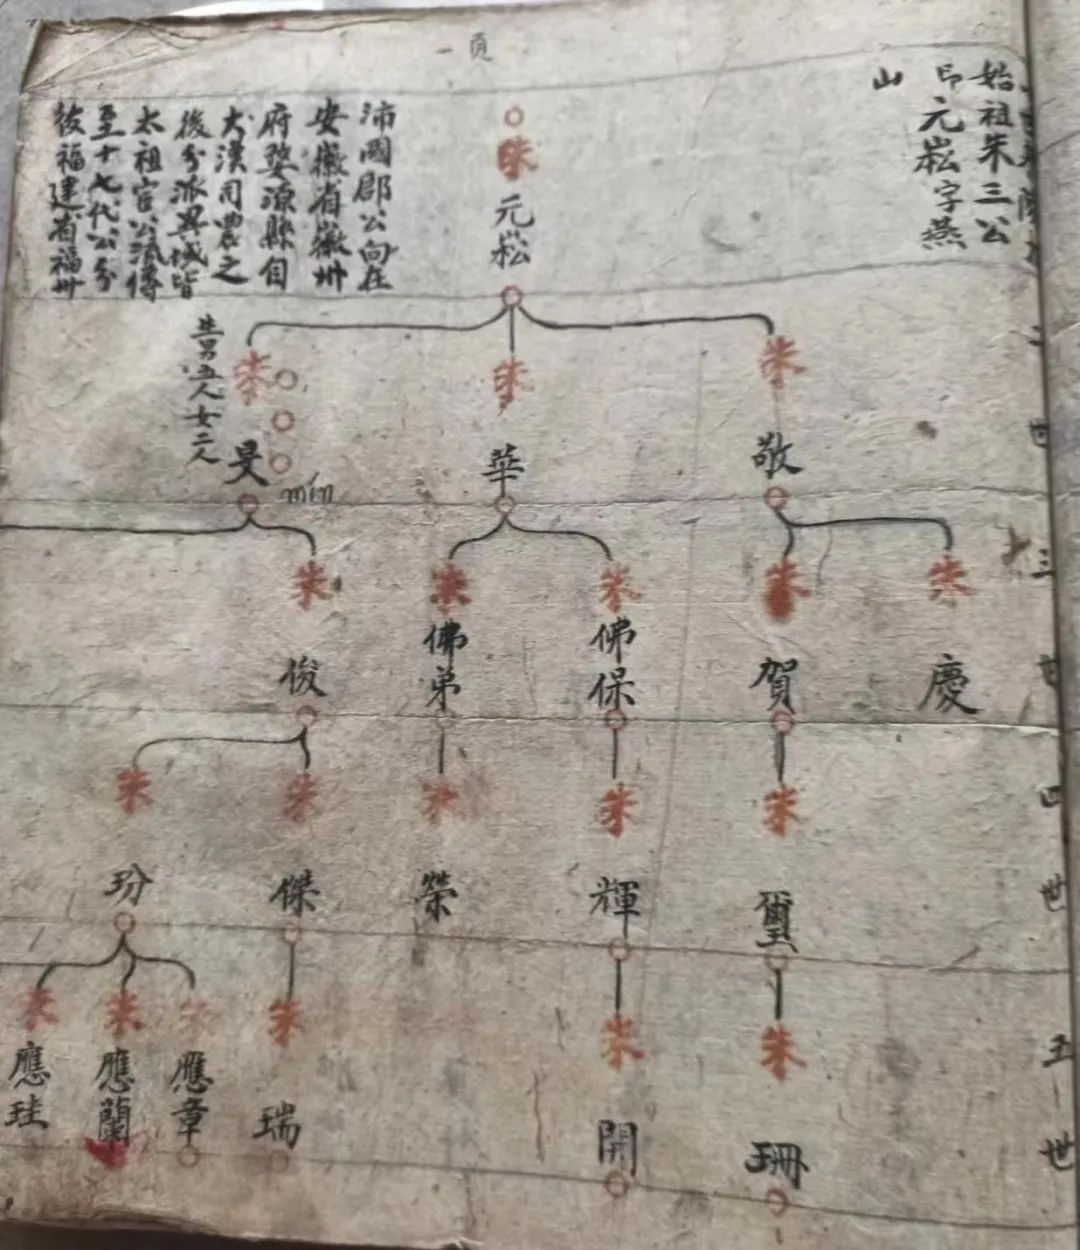 一頁
始祖朱三公
印元崧字燕
山
朱元崧
沛國郡公向在
安徽省徽州
府婺源縣自
大漢司農之
後分派異域皆
太祖官公流傳
至十七代公分
後福建省福州
世
朱敬
朱華
朱旻
mín
生男五人女二人
三世
朱慶
朱賀
朱佛保
朱佛弟
朱俊
四世
朱璽
朱輝
朱榮
朱傑
朱玢
五世
朱珊
朱開
朱瑞
朱應章
朱應蘭
朱應珪